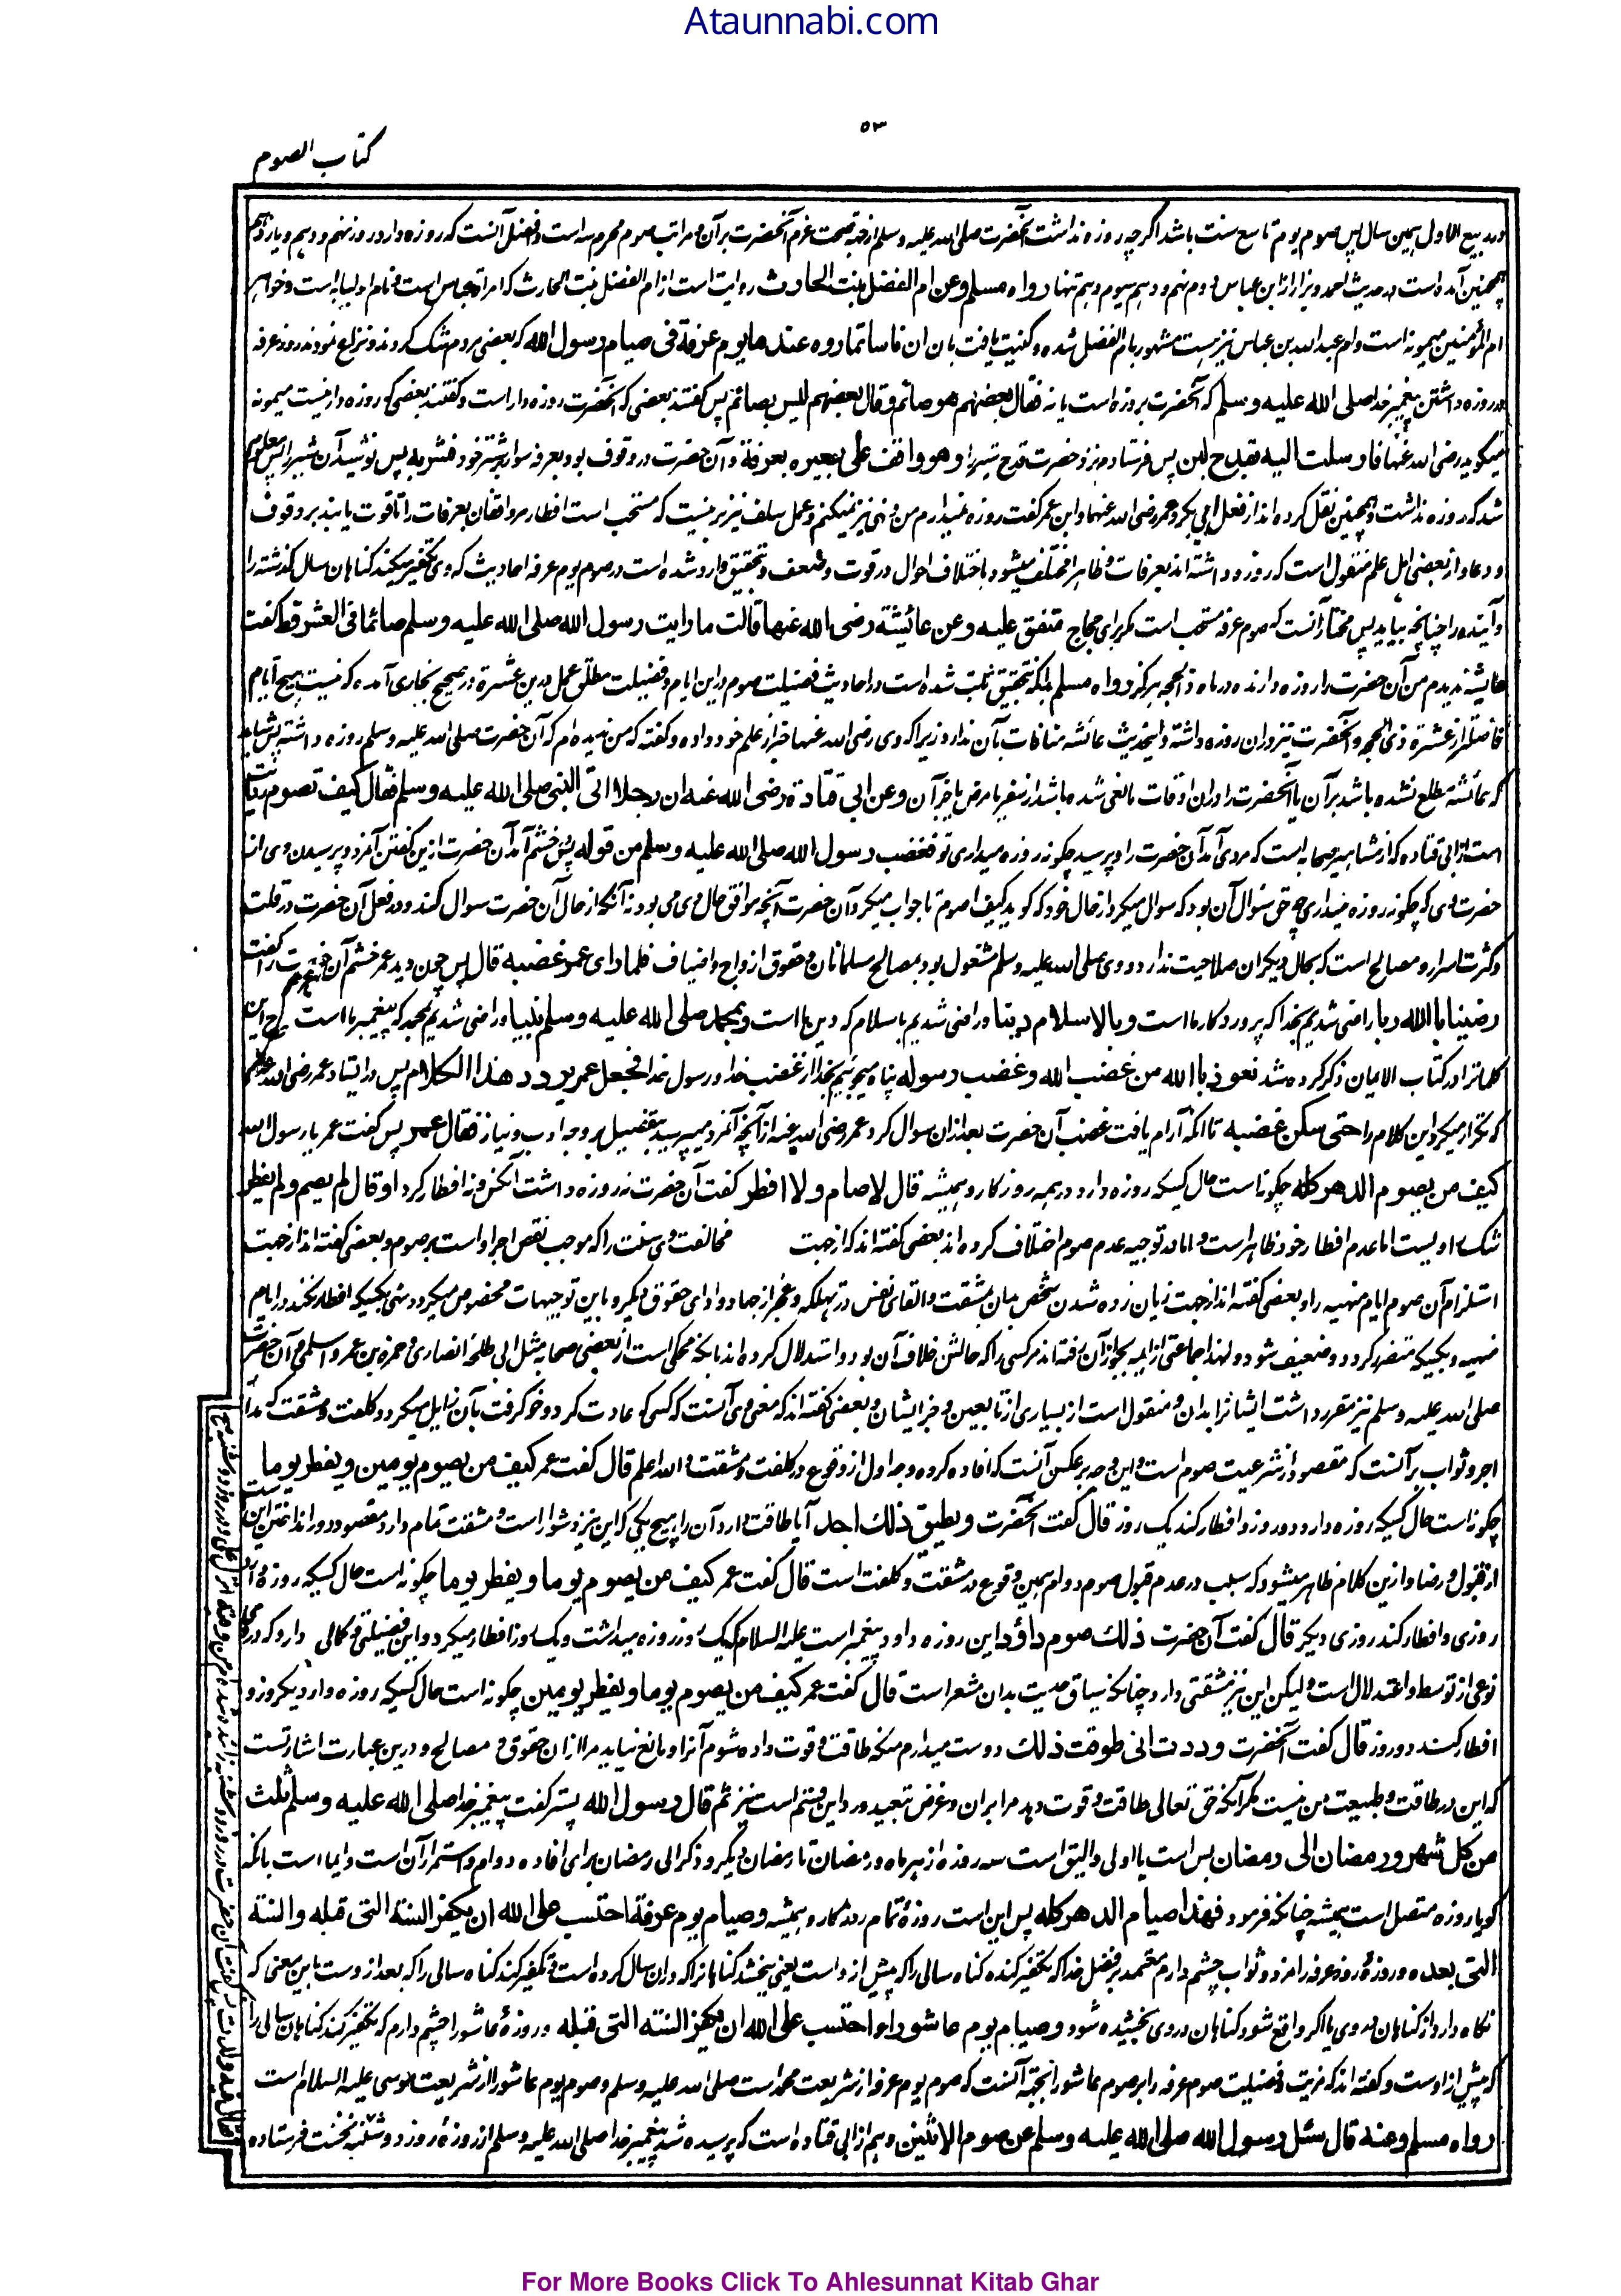 Ataunnabi.com
۵۳
کتاب الصوم
در ربیع الاول ہمین سال پس صوم یوم تاسع سنت باشد اگرچہ روزہ نداشت آنحضرت صلی اللہ علیہ وسلم از جہت صحت عزم آنحضرت بر آن و مراتب صوم محرم سہ است و افضل آنست کہ روزہ دارد روز نہم و دہم و یازدہم
ہمچنین آمدہ است در حدیث احمد و بزار از ابن عباس دوم نہم و دہم سیوم دہم تنہا رواہ مسلم وعن ام الفضل بنت الحارث روایت است از ام الفضل بنت الحارث کہ امراۃ عباس است و نام او لبابہ است و خواہر
ام المؤمنین میمونہ است و ام عبد اللہ بن عباس نیز ہست مشہور بام الفضل شدہ و کنیت یافت بآن ان ناسا تماروه عندها يوم عرفة فى صيام رسول الله کہ بعضی مردم شک کردند و نزاع نمودند روز عرفہ
در روزہ داشتن پیغمبر خدا صلی اللہ علیہ وسلم کہ آنحضرت بروزہ است یا نہ فقال بعضهم هو صائم وقال بعضهم ليس بصائم پس گفتند بعضی کہ آنحضرت روزہ دار است و گفتند بعضی کہ روزہ دار نیست میمونہ
میگوید رضی اللہ عنہا فارسلت اليه بقدح لبن پس فرستادم نزد حضرت قدح شیر را وهو واقف على بعيره بعرفة و آن حضرت در وقوف بود بعرفہ سوار بر شتر خود فشربه پس نوشید آن شیر را پس معلوم
شد کہ روزہ نداشت و ہمچنین نقل کردہ اند از فعل ابی بکر و عمر رضی اللہ عنہما و ابن عمر گفت روزہ نمیدارم من و نہی نیز نمیکنم و عمل سلف نیز برینست کہ مستحب است افطار مر واقفان بعرفات را تا قوت یابند بر وقوف
و دعا و از بعضی اہل علم منقول است کہ روزہ داشتہ اند بعرفات و ظاہرا مختلف میشود باختلاف احوال در قوت و ضعف و بتحقیق وارد شدہ است در صوم یوم عرفہ احادیث کہ وی تکفیر میکند گناہان سال گذشتہ را
و آیندہ را چنانچہ بیاید پس مختار آنست کہ صوم عرفہ مستحب است مگر برای حجاج متفق عليه وعن عائشة رضى الله عنها قالت ما رايت رسول الله صلى الله عليه وسلم صائما فى العشر قط گفت
عایشہ ندیدم من آن حضرت را روزہ دارندہ در ماہ ذی الحجہ ہرگز رواہ مسلم بدانکہ بتحقیق ثابت شدہ است در احادیث فضیلت صوم در این ایام و فضیلت مطلق عمل درین عشرہ و در صحیح بخاری آمدہ کہ نیست ہیچ ایام
فاضلتر از عشرہ ذی الحجہ و آنحضرت نیز در آن روزہ داشتہ و این حدیث عائشہ منافات بآن ندارد زیرا کہ وی رضی اللہ عنہا خبر از علم خود دادہ و گفتہ کہ من ندیدہ ام کہ آن حضرت صلی اللہ علیہ وسلم روزہ داشتہ پس شاید
کہ عائشہ مطلع نشدہ باشد بر آن یا آنحضرت را در ان اوقات مانعی شدہ باشد از سفر یا مرض یا جز آن وعن ابى قتادة رضى الله عنه ان رجلا اتى النبى صلى الله عليه وسلم فقال كيف تصوم روایت
است از ابی قتادہ کہ از مشاہیر صحابہ است کہ مردی آمد آن حضرت را و پرسید چگونہ روزہ میداری تو فغضب رسول الله صلى الله عليه وسلم من قوله پس خشم آمد آن حضرت از ین گفتن آنمرد و پرسیدن وی از
حضرت وی کہ چگونہ روزہ میداری چہ حق سوال آن بود کہ سوال میکرد از حال خود کہ گوید کیف اصوم تا جواب میکرد آن حضرت آنچہ موافق حال وی می بود نہ آنکہ از حال آن حضرت سوال کند و در فعل آن حضرت در قلت
و کثرت اسرار و مصالح است کہ بحال دیگران صلاحیت ندارد و وی صلی اللہ علیہ وسلم مشغول بود بمصالح مسلمانان و حقوق ازواج و اضیاف فلما راى عمر غضبه قال پس چون دید عمر خشم آن حضرت را گفت
رضينا بالله ربا راضی شدیم بخدا کہ پروردگار ما است وبالاسلام دينا و راضی شدیم باسلام کہ دین ما است وبمحمد صلى الله عليه وسلم نبيا و راضی شدیم بمحمد کہ پیغمبر ما است شرح این
کلمات را در کتاب الایمان ذکر کردہ شد نعوذ بالله من غضب الله وغضب رسوله پناہ میجوئیم بخدا از غضب خدا و رسول خدا فجعل عمر يردد هذا الكلام پس در ایستاد عمر رضی اللہ عنہ
کہ تکرار میکرد این کلام را حتى سكن غضبه تا آنکہ آرام یافت غضب آن حضرت بعد ازان سوال کرد عمر رضی اللہ عنہ از آنچہ آنمرد میپرسید بتفصیل بر وجہ ادب و نیاز فقال عمر پس گفت عمر یا رسول اللہ
كيف من يصوم الدهر كله چگونہ است حال کسیکہ روزہ دارد در ہمہ روزگار و ہمیشہ قال لا صام ولا افطر گفت آن حضرت نہ روزہ داشت آنکس و نہ افطار کرد او قال لم يصم ولم يفطر
شک راویست اما عدم افطار خود ظاہر است و اما در توجیہ عدم صوم اختلاف کردہ اند بعضی گفتہ اند کہ از جہت مخالفت وی سنت را کہ موجب نقص اجر او است بر صوم و بعضی گفتہ اند از جہت
استلزام آن صوم ایام منہیہ را و بعضی گفتہ اند از جہت زیان زدہ شدن شخص بآن مشقت و القای نفس در تہلکہ و عجز از جہاد و ادای حقوق دیگر و باین توجیہات مخصوص میگردد نہی بکسیکہ افطار نکند در ایام
منہیہ و بکسیکہ متضرر گردد و ضعیف شود و لہذا جماعتی از ایمہ بجواز آن رفتہ اند مر کسی را کہ حالش خلاف آن بود و استدلال کردہ اند بانکہ محکی است از بعضی صحابہ مثل ابی طلحہ انصاری و حمزہ بن عمرو اسلمی و آن حضرت
صلی اللہ علیہ وسلم نیز مقرر داشت ایشانرا بدان و منقول است از بسیاری از تابعین و جز ایشان و بعضی گفتہ اند کہ معنی وی آنست کہ کسی کہ عادت کرد و خو گرفت بآن زایل میگردد کلفت و مشقت کہ مدار
اجر و ثواب بر آنست کہ مقصود از شرعیت صوم است و این وجہ بر عکس آنست کہ افادہ کردہ وجہ اول از وقوع در کلفت و مشقت و اللہ اعلم قال گفت عمر كيف من يصوم يومين ويفطر يوما
چگونہ است حال کسیکہ روزہ دارد دو روز و افطار کند یک روز قال گفت آنحضرت ويطيق ذلك احد آیا طاقت دارد آن را ہیچ یکی کہ این نیز دشوار است و مشقت تمام دارد مقصود دور انداختن این است
از قبول و رضا و ازین کلام ظاہر میشود کہ سبب در عدم قبول صوم دوام ہمین وقوع در مشقت و کلفت است قال گفت عمر كيف من يصوم يوما ويفطر يوما چگونہ است حال کسیکہ روزہ دارد
روزی و افطار کند روزی دیگر قال گفت آن حضرت ذلك صوم داؤد این روزہ داود پیغمبر است علیہ السلام کہ یک روز روزہ میداشت و یک روز افطار میکرد و این فضیلتی و کمالی دارد کہ در وی
نوعی از توسط و اعتدال است ولیکن این نیز مشقتی دارد چنانکہ سیاق حدیث بدان مشعر است قال گفت عمر كيف من يصوم يوما ويفطر يومين چگونہ است حال کسیکہ روزہ دارد یکروز و
افطار کند دو روز قال گفت آنحضرت وددت انى طوقت ذلك دوست میدارم منکہ طاقت و قوت دادہ شوم آنرا و مانع نیاید مرا از ان حقوق و مصالح و درین عبارت اشارتست
کہ این در طاقت و طبیعت من نیست مگر آنکہ حق تعالی طاقت و قوت دہد مرا بران و غرض تبعید ورد این قسم است نیز ثم قال رسول الله پستر گفت پیغمبر خدا صلى الله عليه وسلم ثلث
من كل شهر ورمضان الى رمضان بس است یا اولی و الیق است سہ روزہ از ہر ماہ و رمضان تا رمضان دیگر و ذکر الی رمضان برای افادہ دوام و استمرار آن است و ایما است بانکہ
گویا روزہ متصل است ہمیشہ چنانکہ فرمود فهذا صيام الدهر كله پس این است روزۀ تمام روزگار و ہمیشہ وصيام يوم عرفة احتسب على الله ان يكفر السنة التى قبله والسنة
التى بعده و روزۀ روز عرفہ را مزد و ثواب چشم دارم معتمد بر فضل خدا کہ تکفیر کنندہ گناہ سالی را کہ پیش از و است یعنی ببخشد گناہانرا کہ در ان سال کردہ است و تکفیر کند گناہ سالی را کہ بعد از وست باین معنی کہ
نگاہ دارد از گناہان در وی یا اگر واقع شود گناہان در وی بخشیدہ شود وصيام يوم عاشوراء احتسب على الله ان يكفر السنة التى قبله و روزۀ عاشورا چشم دارم کہ تکفیر کند گناہان سالی را
کہ پیش از اوست و گفتہ اند کہ مزیت و فضیلت صوم عرفہ را بر صوم عاشورا بجہت آنست کہ صوم یوم عرفہ از شریعت محمد است صلی اللہ علیہ وسلم و صوم یوم عاشورا از شریعت موسی علیہ السلام است
رواه مسلم وعنه قال سئل رسول الله صلى الله عليه وسلم عن صوم الاثنين وہم از ابی قتادہ است کہ پرسیدہ شد پیغمبر خدا صلی اللہ علیہ وسلم از روزۀ روز دوشنبہ بخشت فرستادہ
فقال فيه ولدت
For More Books Click To Ahlesunnat Kitab Ghar